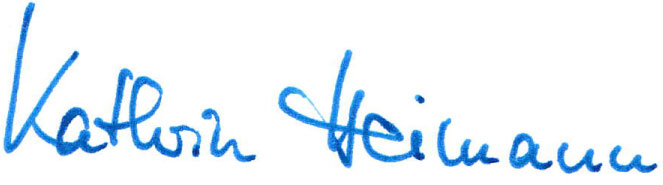 Kathrin Heimann